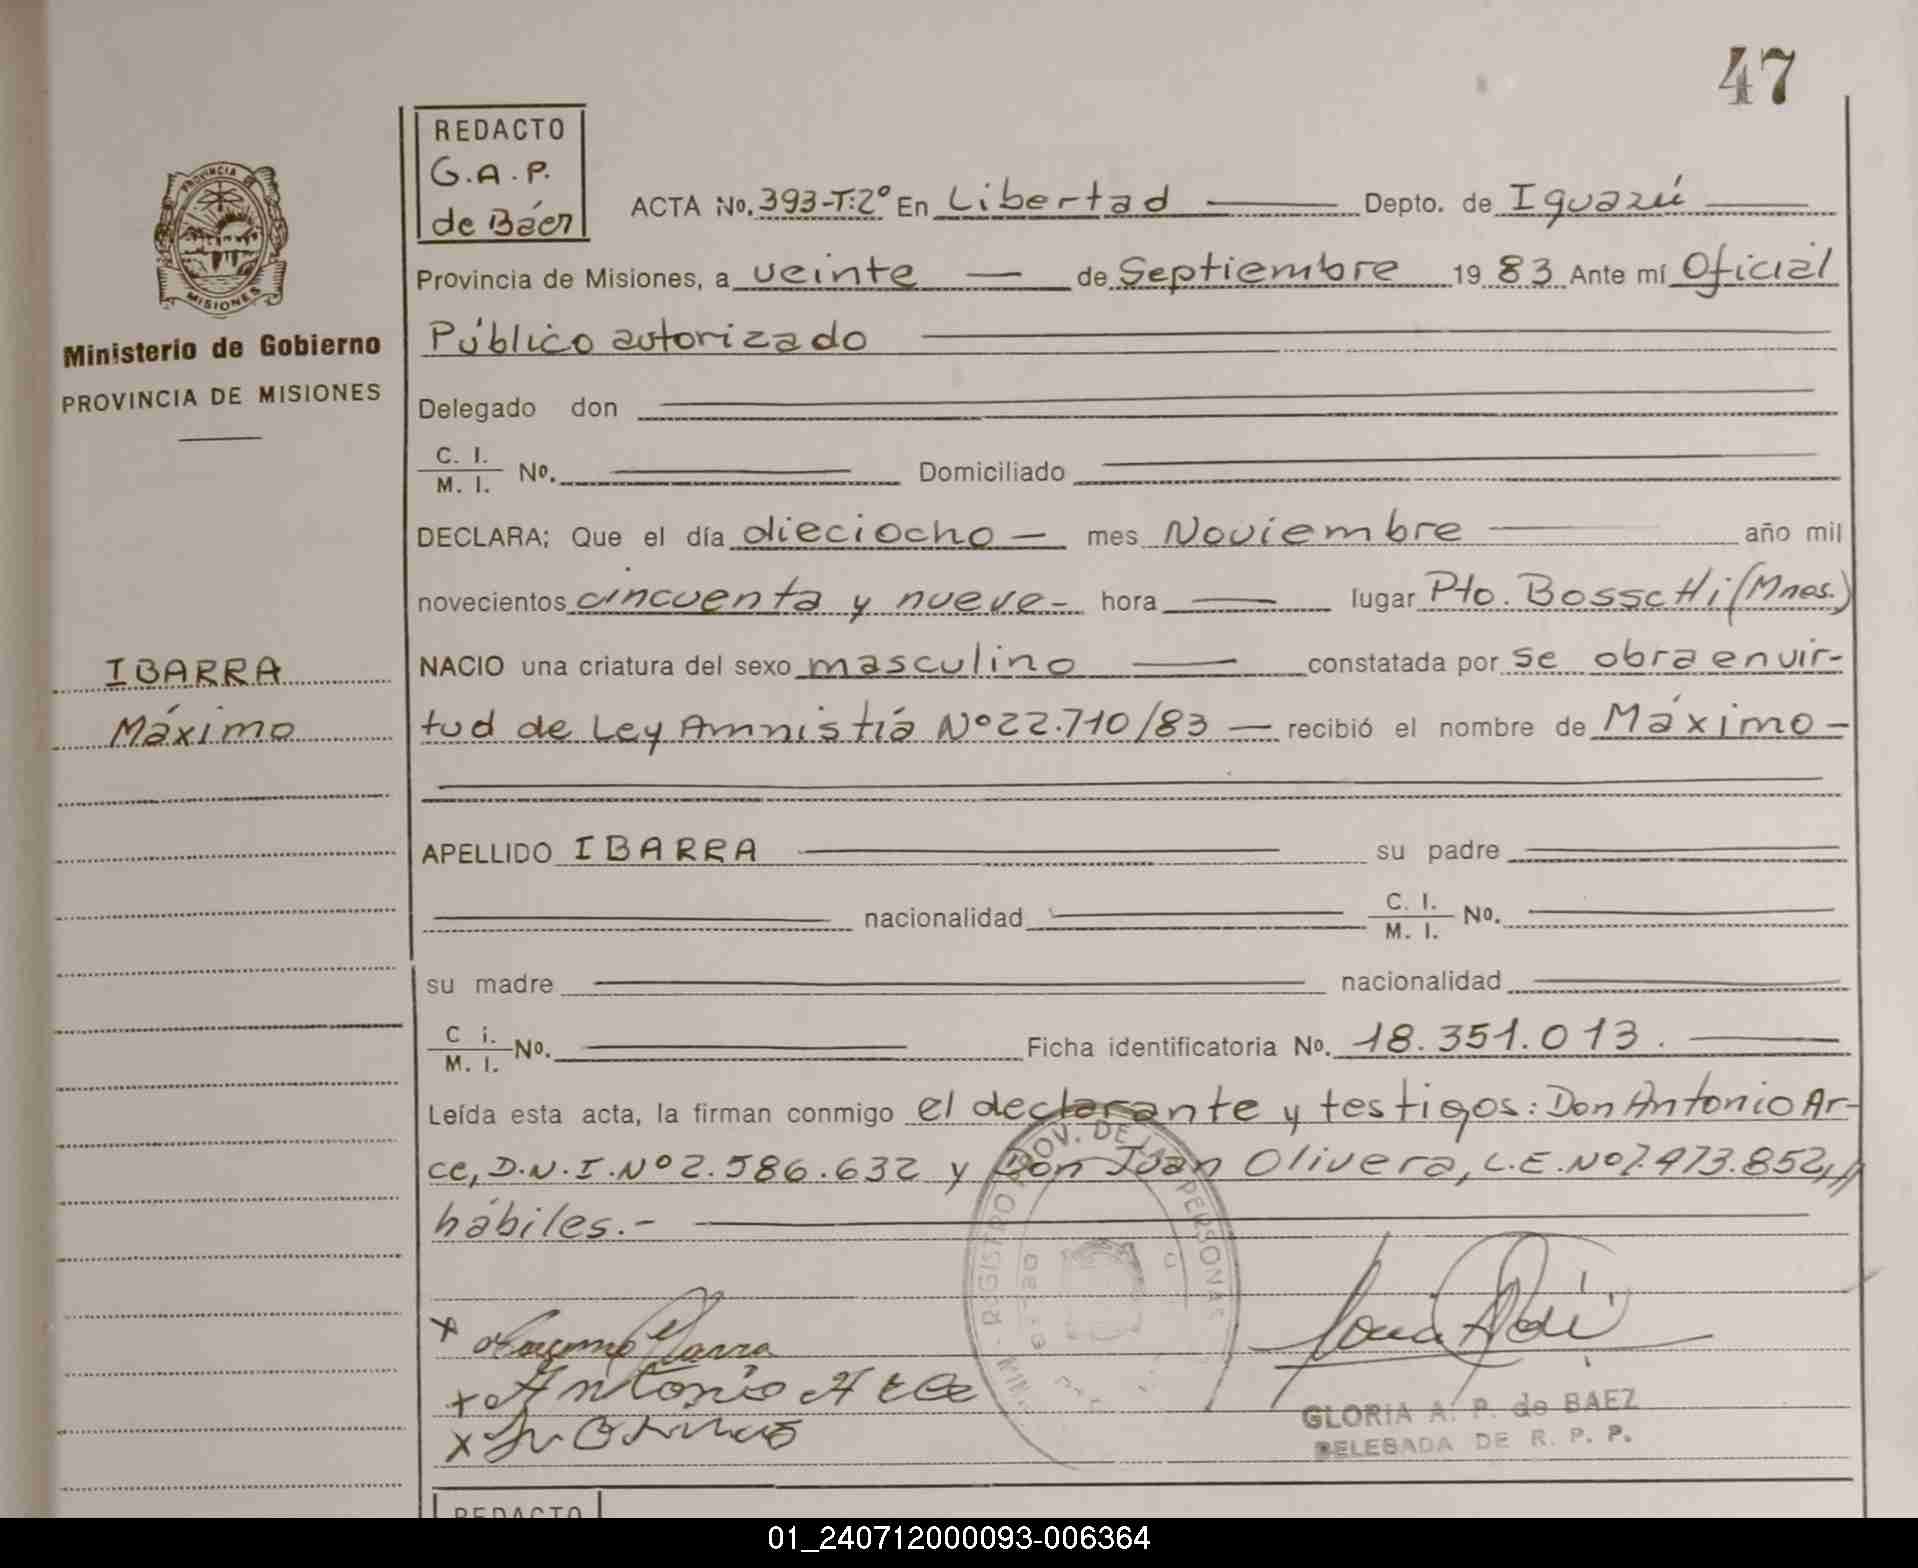 47
REDACTO
G.A.P.
de Báez
PROVINCIA DE
MISIONES
Ministerio de Gobierno
PROVINCIA DE MISIONES
ACTA No. 393-T:2º En Libertad Depto. de Iguazú
Provincia de Misiones, a veinte de Septiembre 19 83 Ante mí Oficial
Público autorizado
Delegado don
C. I.
M. I. No. Domiciliado
DECLARA; Que el día dieciocho mes Noviembre año mil
novecientos cincuenta y nueve- hora lugar Pto. BosscHi (Mnes.)
IBARRA
Máximo
NACIO una criatura del sexo masculino constatada por se obra en vir-
tud de Ley Amnistía Nº 22.710/83 recibió el nombre de Máximo
APELLIDO IBARRA su padre
nacionalidad C. I.
M. I. No.
su madre nacionalidad
C i.
M. I. No. Ficha identificatoria No. 18.351.013.
Leída esta acta, la firman conmigo el declarante y testigos: Don Antonio Ar-
ce, D.N.I. Nº 2.586.632 y Don Juan Olivera, L.E. Nº 7.973.852,//
hábiles.-
REGISTRO PROV. DE LAS PERSONAS
x Ibarra
x Antonio Arce
x
GLORIA A. P. de BAEZ
DELEGADA DE R. P. P.
REDACTO
01_240712000093-006364